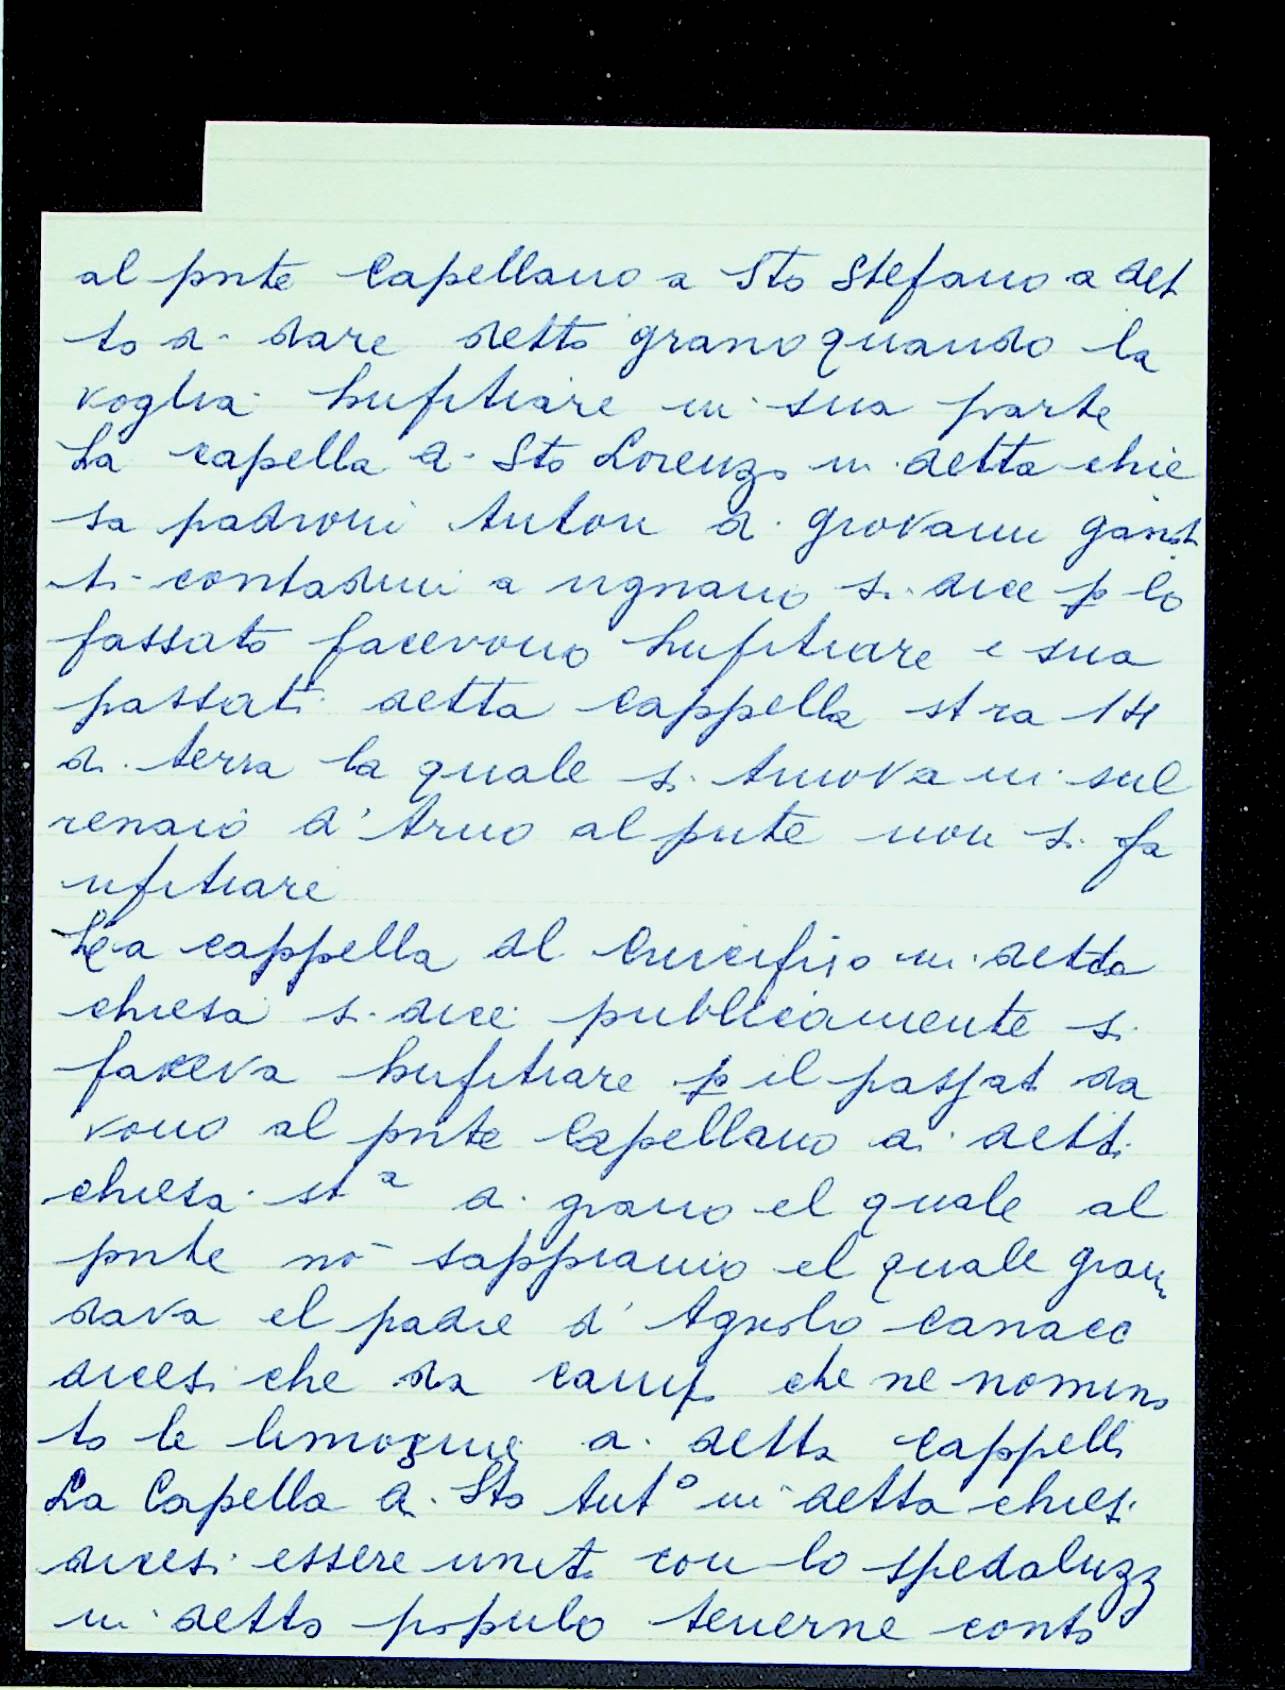 al pnte Capellano a Sto Stefano a det
to di dare detto grano quando la
voglia hufitiare in sua parte
La capella di Sto Lorenzo in detta chie
sa padroni Anton di giovanni
ti contadini a rignano si dice p lo
passato facevono hufitiare e sua
passati detta cappella stra 14
di terra la quale si truova in sul
renaio d'Arno al pnte non si fa
ufitiare
La cappella del Crucifisso in detta
chiesa si dice publicamente si
faceva hufitiare p il passat da
vono al pnte Capellano di detti
chiesa st a di grano el quale al
pnte nō sappiamo el quale gran
dava el padre d' Agnolo
dicesi che da che ne nomino
to le limosine a detta cappell
La Capella di Sto Antº in detta chies
dicesi essere unit con lo spedaluzz
in detto popolo tenerne conto